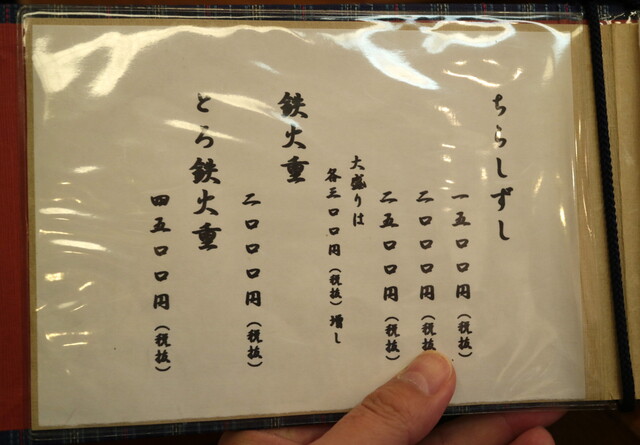 ちらしずし
一五〇〇円（税抜）
二〇〇〇円（税抜）
二五〇〇円（税抜）
大盛りは
各三〇〇円（税抜）増し
鉄火重
二〇〇〇円（税抜）
とろ鉄火重
四五〇〇円（税抜）